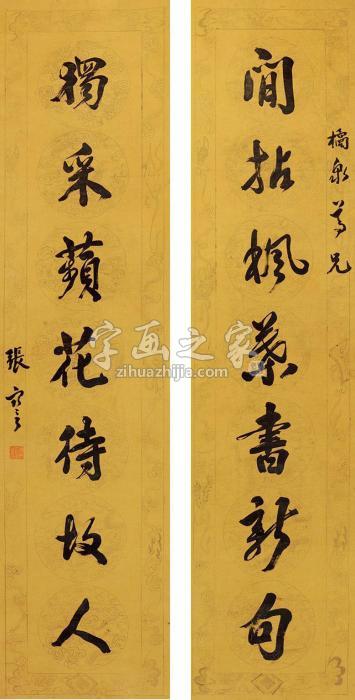 橘泉尊兄
間拈楓葉書新句
獨采蘋花待故人
張
字画之家
zihuazhijia.com